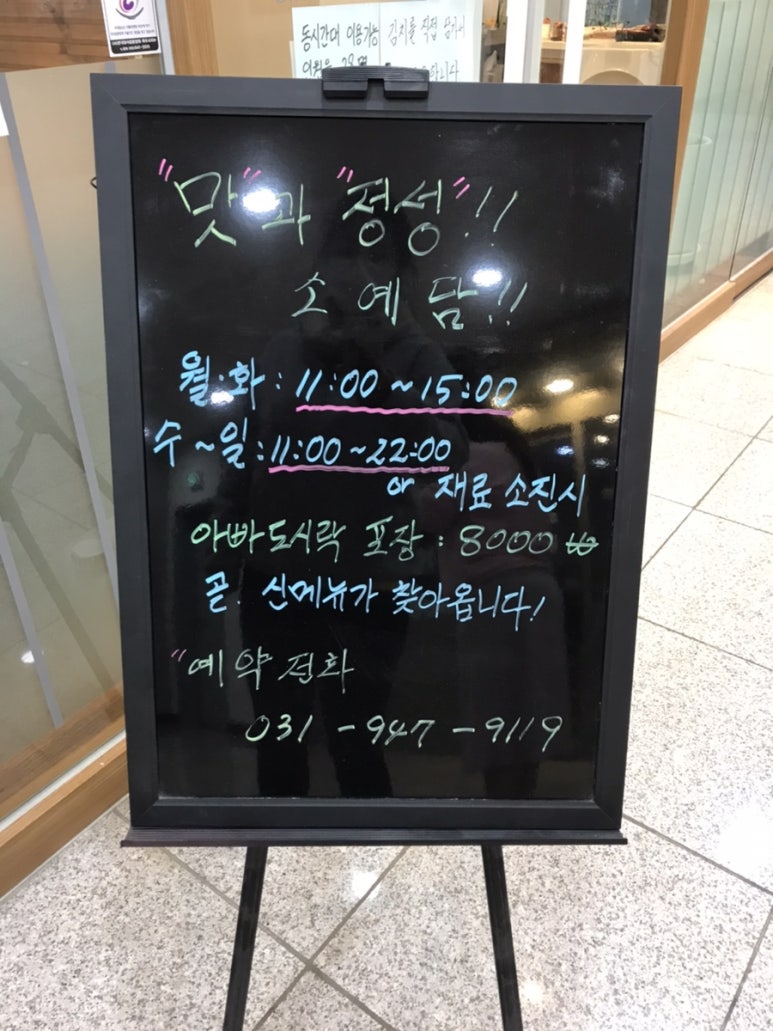 동시간대 이용가능
김치를 직접
"맛"과 "정성"!!
소예담!!
월·화 : 11:00 ~ 15:00
수 ~ 일 : 11:00 ~ 22:00
or 재료 소진시
아빠도시락 포장 : 8000 ₩
곧. 신메뉴가 찾아옵니다!
"예약전화
031 - 947 - 9119